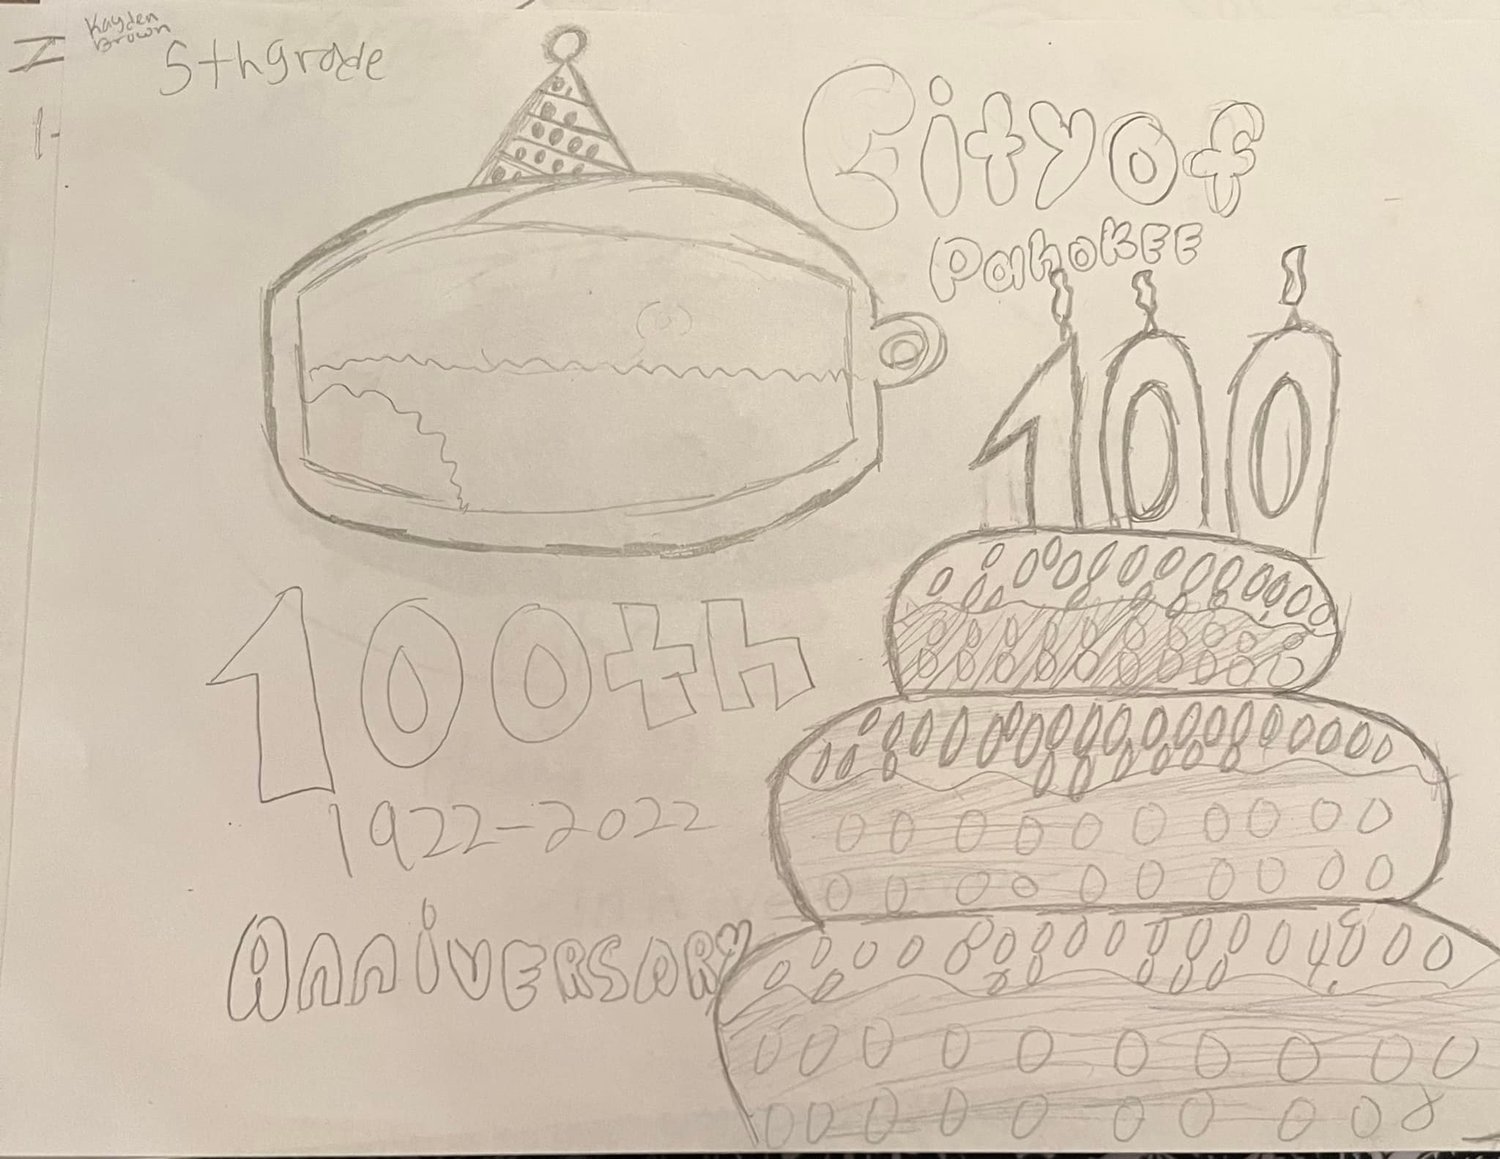 Kayden
Brown
5th grade
City of
Pahokee
100
100th
1922-2022
Anniversary